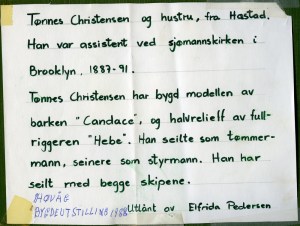 Tønnes Christensen og hustru, fra Hastad.
Han var assistent ved sjømannskirken i
Brooklyn. 1887-91.
Tønnes Christensen har bygd modellen av
barken "Candace", og halvrelieff av full-
riggeren "Hebe". Han seilte som tømmer-
mann, seinere som styrmann. Han har
seilt med begge skipene.
HØVÅG
BYGDEUTSTILLING 1988
Utlånt av Elfrida Pedersen